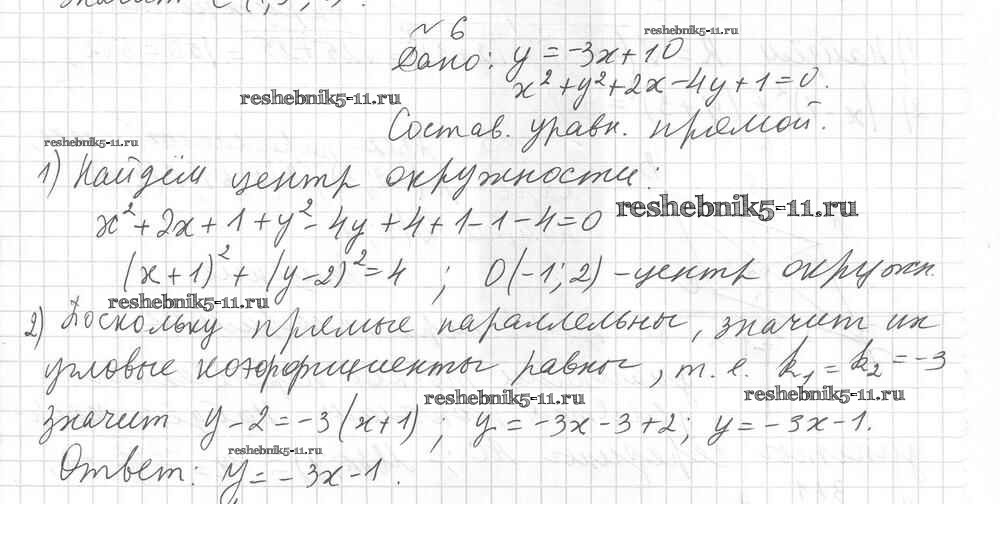 № 6
reshebnik5-11.ru
Дано: y = -3x+10
x²+y²+2x-4y+1=0.
reshebnik5-11.ru
Состав. уравн. прямой.
reshebnik5-11.ru
1) Найдём центр окружности:
reshebnik5-11.ru
x²+2x+1+y²-4y+4+1-1-4=0
(x+1)²+(y-2)²=4 ; O(-1; 2) - центр окружн.
reshebnik5-11.ru
2) Поскольку прямые параллельны, значит их
угловые коэффициенты равны, т. е. k₁ = k₂ = -3
reshebnik5-11.ru
reshebnik5-11.ru
значит y-2=-3(x+1) ; y=-3x-3+2; y=-3x-1.
reshebnik5-11.ru
Ответ: y=-3x-1.